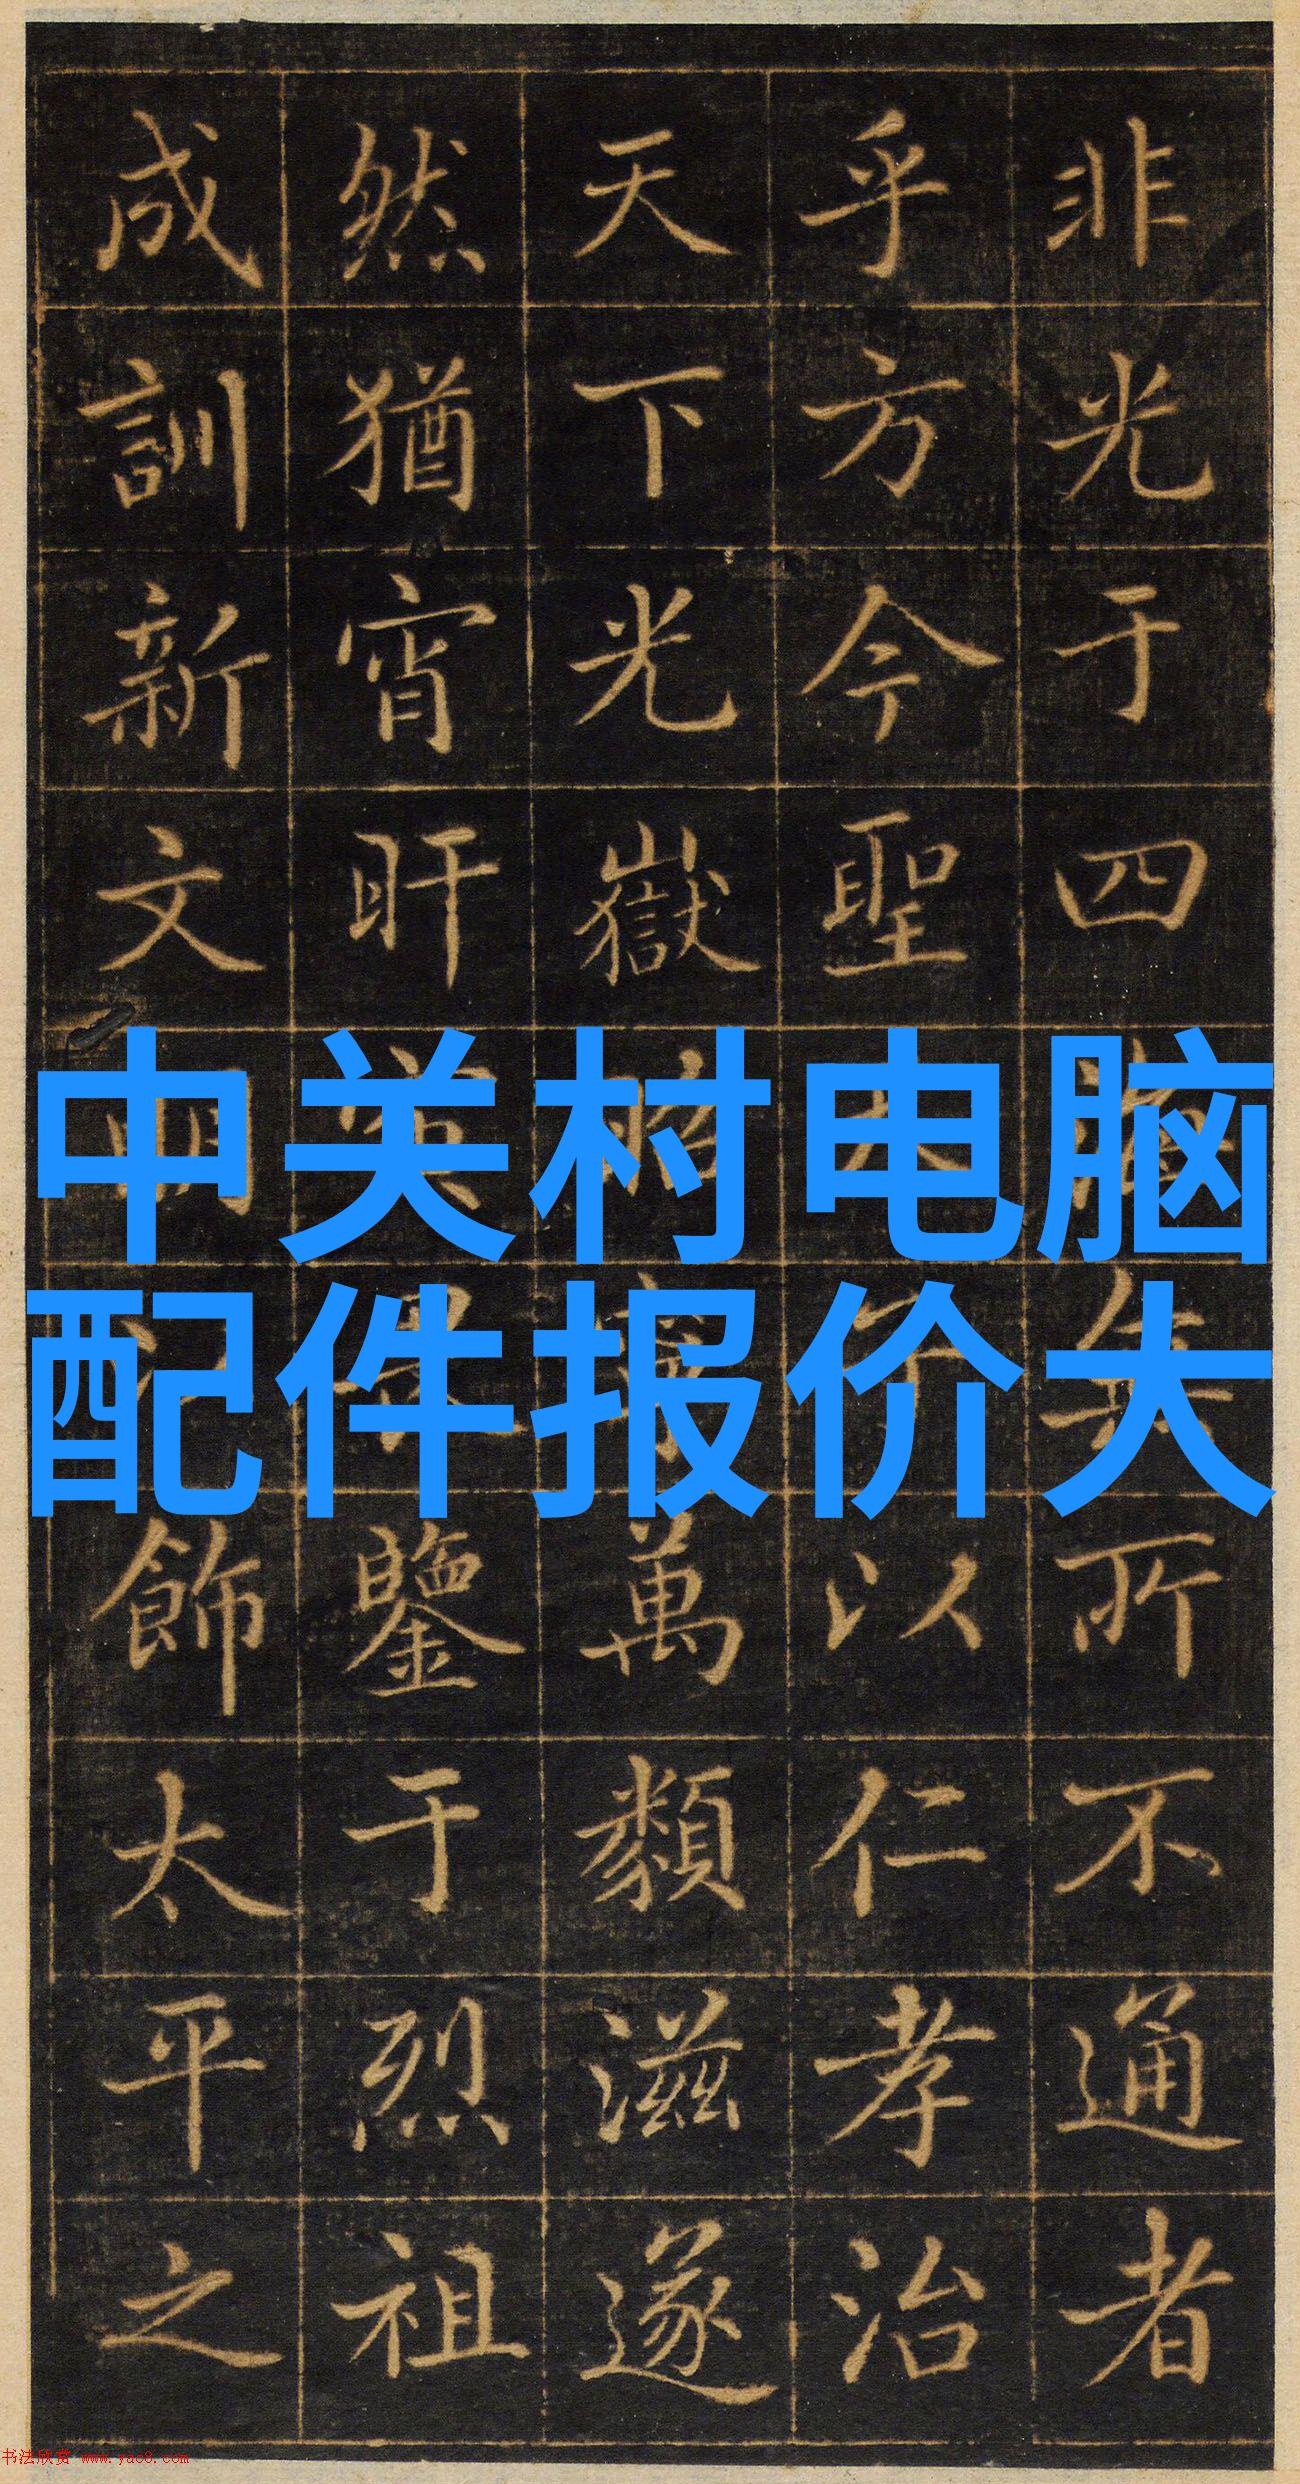 非光于四海無所不通者
乎方今聖天子以仁孝治
天下光嶽昭萬類滋遂
然猶宵旰鑒于烈祖
成訓新文明飾太平之
中关村电脑
配件报价大
书法欣赏 www.yac8.com